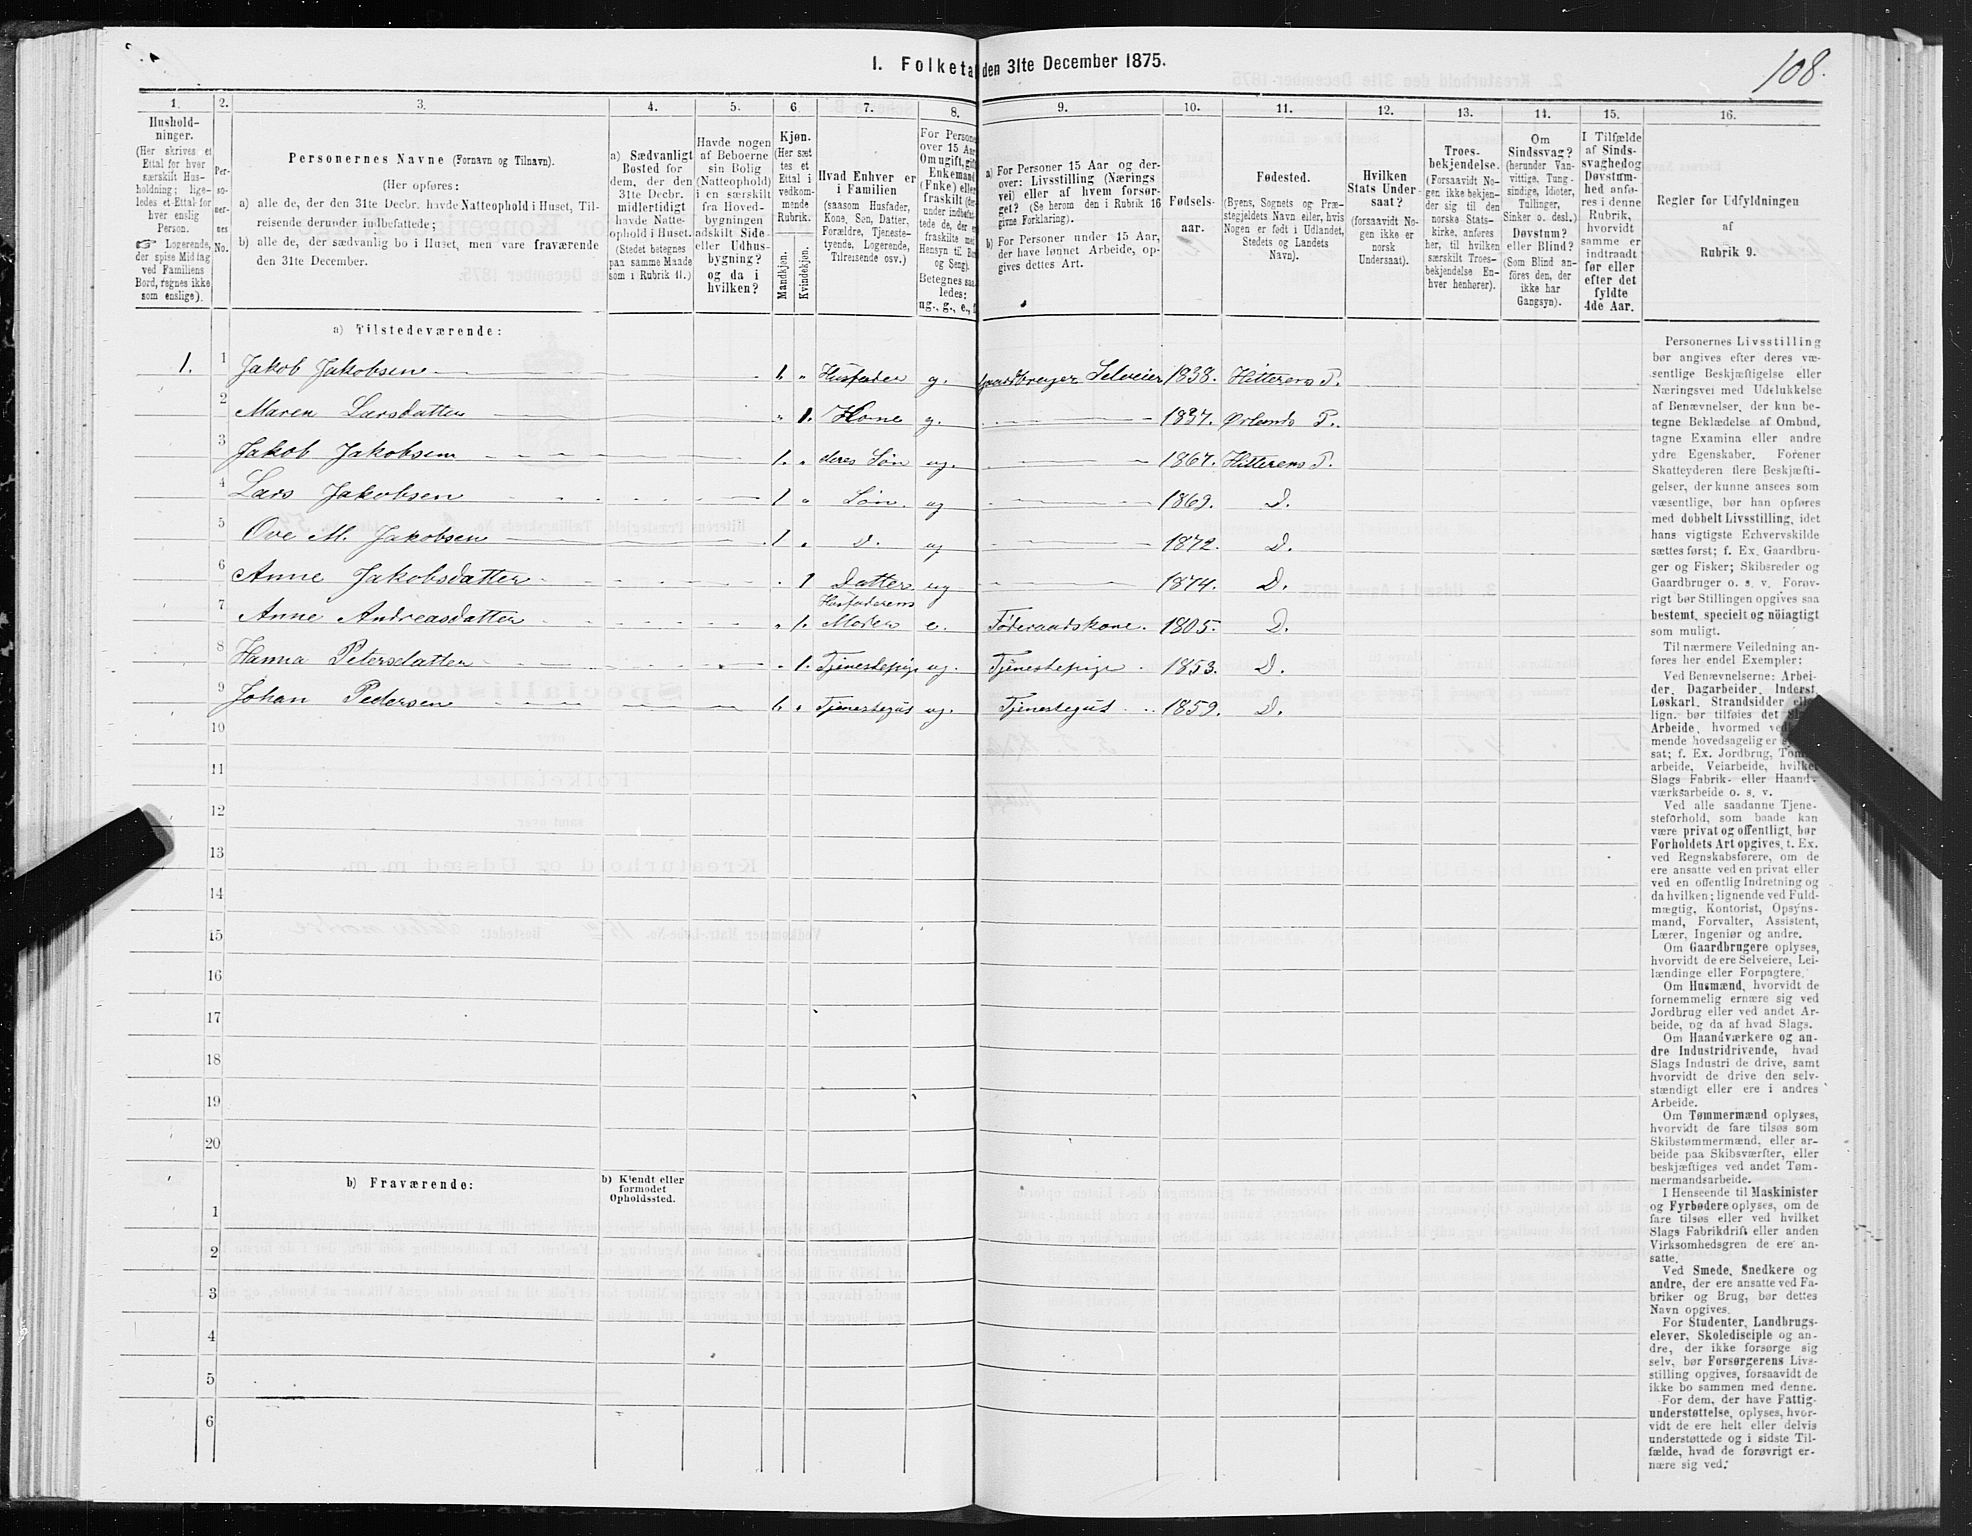 108.
I. Folketa den 31te December 1875.
1. 2. 3. 4. 5. 6. 7. 8. 9. 10. 11. 12. 13. 14. 15. 16.
Hushold-
ninger.
(Her skrives et
Ettal for hver
særskilt Hus-
holdning; lige-
ledes et Ettal for
hver enslig
Person.
☞ Logerende,
der spise Middag
ved Familiens
Bord, regnes ikke
som enslige).
Per-
so-
ner-
nes
No.
Personernes Navne (Fornavn og Tilnavn).
(Her opføres:
a) alle de, der den 31te Decbr. havde Natteophold i Huset, Til-
reisende derunder indbefattede;
b) alle de, der sædvanlig bo i Huset, men vare fraværende
den 31te December.
a) Sædvanligt
Bosted for
dem, der den
31te Decbr.
midlertidigt
havde Natte-
ophold i Huset.
(Stedet betegnes
paa samme Maade
som i Rubrik 11.)
Havde nogen
af Beboerne
sin Bolig
(Natteophold)
i en særskilt
fra Hoved-
bygningen
adskilt Side-
eller Udhus-
bygning?
og da i
hvilken?
Kjøn.
(Her sæt-
tes et
Ettal i
vedkom-
mende
Rubrik.
Mandkjøn.
Kvindekjøn.
Hvad Enhver er
i Familien
(saasom Husfader,
Kone, Søn, Datter,
Forældre, Tjeneste-
tyende, Logerende,
Tilreisende osv.)
For Persone
over 15 Aar
Om ugift, gift
Enkemand
(Enke) elle
fraskilt (der-
under indbefat-
tede de, der e
fraskilte med
Hensyn til Bo
og Seng).
Betegnes saa
ledes:
ug., g., e.,
a) For Personer 15 Aar og der-
over: Livsstilling (Nærings
vei) eller af hvem forsør-
get? (Se herom den i Rubrik 16
givne Forklaring).
b) For Personer under 15 Aar,
der have lønnet Arbeide, op-
gives dettes Art.
Fødsels-
aar.
Fødested.
(Byens, Sognets og Præ-
stegjeldets Navn eller, hvis
Nogen er født i Udlandet,
Stedets og Landets
Navn).
Hvilken
Stats Under-
saat?
(forsaavidt No-
gen ikke er
norsk
Undersaat).
Troes-
bekjendelse.
(Forsaavidt No-
gen ikke bekjen-
der sig til den
norske Stats-
kirke, anføres
her, til hvilken
særskilt Troes-
bekjendelse En-
hver henhører).
Om
Sindssvag?
(herunder Van-
vittige, Tung-
sindige, Idioter,
Tullinger,
Sinker o. desl.)
Døvstum?
eller Blind?
(Som Blind an-
føres den, der
ikke har
Gangsyn).
I Tilfælde
af Sinds-
svaghed og
Døvstum-
hed anfø-
res i denne
Rubrik,
hvorvidt
samme er
indtraadt
før eller
efter det
fyldte
4de Aar.
Regler for Udfyldningen
af
Rubrik 9.
a) Tilstedeværende:
1. 1 Jakob Jakobsen 1. " Husfader g. Gaardbruger Selveier 1838. Hitterens P.
2 Maren Larsdatter " 1. Kone g. 1837. Ørlands P.
3 Jakob Jakobsen 1. " deres Søn ug. 1867. Hitterens P.
4 Lars Jakobsen 1 " Søn. ug 1869. D.
5 Ove M. Jakobsen 1 " D. ug 1872. D.
6 Anne Jakobsdatter " 1 Datter ug 1874. D.
7 Anne Andreasdatter " 1. Husfaderens Moder e. Føderaadskone. 1805. D.
8 Hanna Petersdatter " 1. Tjenestepige ug. Tjenestepige 1853. D.
9 Johan Pedersen 1. " Tjenestegut ug. Tjenestegut 1859. D.
10
11
12
13
14
15
16
17
18
19
20
b) Fraværende:
b) Kjendt eller
formodet
Opholdssted.
1
2
3
4
5
6
Personernes Livsstilling
bør angives efter deres væ-
sentlige Beskjæftigelse eller
Næringsvei med Udelukkelse
af Benævnelser, der kun be-
tegne Beklædelse af Ombud,
tagne Examina eller andre
ydre Egenskaber. Forener
Skatteyderen flere Beskjæfti-
gelser, der kunne ansees som
væsentlige, bør han opføres
med dobbelt Livsstilling, idet
hans vigtigste Erhvervskilde
sættes først; f. Ex. Gaardbru-
ger og Fisker; Skibsreder og
Gaardbruger o. s. v. Forøv-
rigt bør Stillingen opgives saa
bestemt, specielt og nöiagtigt
som muligt.
Til nærmere Veiledning an-
føres her endel Exempler:
Ved Benævnelserne: Arbei-
der, Dagarbeider, Inderst,
Løskarl, Strandsidder ell
lign. bør tilføies det Sl
Arbeide, hvormed ved
mende hovedsagelig er s
sat; f. Ex. Jordbrug, Tøm
arbeide, Veiarbeide, hvilke
Slags Fabrik- eller Haand-
værksarbeide o. s. v.
Ved alle saadanne Tjene-
steforhold, som baade kan
være privat og offentligt, bør
Forholdets Art opgives, f. Ex.
ved Regnskabsførere, om de
ere ansatte ved en privat eller
ved en offentlig Indretning og
da hvilken; lignende ved Fuld-
mægtig, Kontorist, Opsyns-
mand, Forvalter, Assistent,
Lærer, Ingeniør og andre.
Om Gaardbrugere oplyses,
hvorvidt de ere Selveiere, Lei-
lændinge eller Forpagtere.
Om Husmænd, hvorvidt de
fornemmelig ernære sig ved
Jordbrug eller ved andet Ar-
beide, og da af hvad Slags.
Om Haandværkere og an-
dre Industridrivende, hvad
Slags Industri de drive, samt
hvorvidt de drive den selv-
stændigt eller ere i andres
Arbeide.
Om Tømmermænd oplyses,
hvorvidt de fare tilsøs som
Skibstømmermænd, eller ar-
beide paa Skibsværfter, eller
beskjæftiges ved andet Tøm-
mermandsarbeide.
I Henseende til Maskinister
og Fyrbødere oplyses, om de
fare tilsøs eller ved hvilket
Slags Fabrikdrift eller anden
Virksomhedsgren de ere an-
satte.
Ved Smede, Snedkere og
andre, der ere ansatte ved Fa-
briker og Brug, bør dettes
Navn opgives.
For Studenter, Landbrugs-
elever, Skoledisciple og an-
dre, der ikke forsørge sig
selv, bør Forsørgerens Livs-
stilling opgives, forsaavidt de
ikke bo sammen med denne.
For dem, der have Fattig-
understøttelse, oplyses, hvor-
vidt de ere helt eller delvis
understøttede og i sidste Til-
fælde, hvad de forøvrigt er-
nære sig ved.